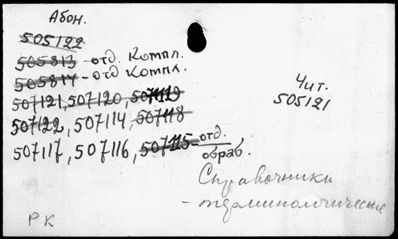 Абон.
505122
505813 - отд. Компл.
505814 - отд Компл.
507121, 507120, 507119
507122, 507114, 507118
507117, 507116, 507115 - отд.
обраб.
Чит.
505121
Справочники
- терминологические
РК